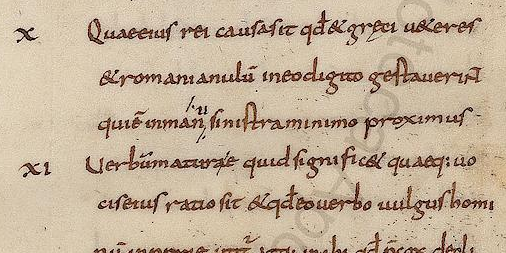 X Quae eius rei causa sit qđ & greci ueteres
& romani anulũ in eo digito gestauerint
qui ẽ in manu sinistra minimo proximus
XI Uerbũ maturare quid signific& quaeq; uo
cis eius ratio sit & qđ eo uerbo uulgus homi